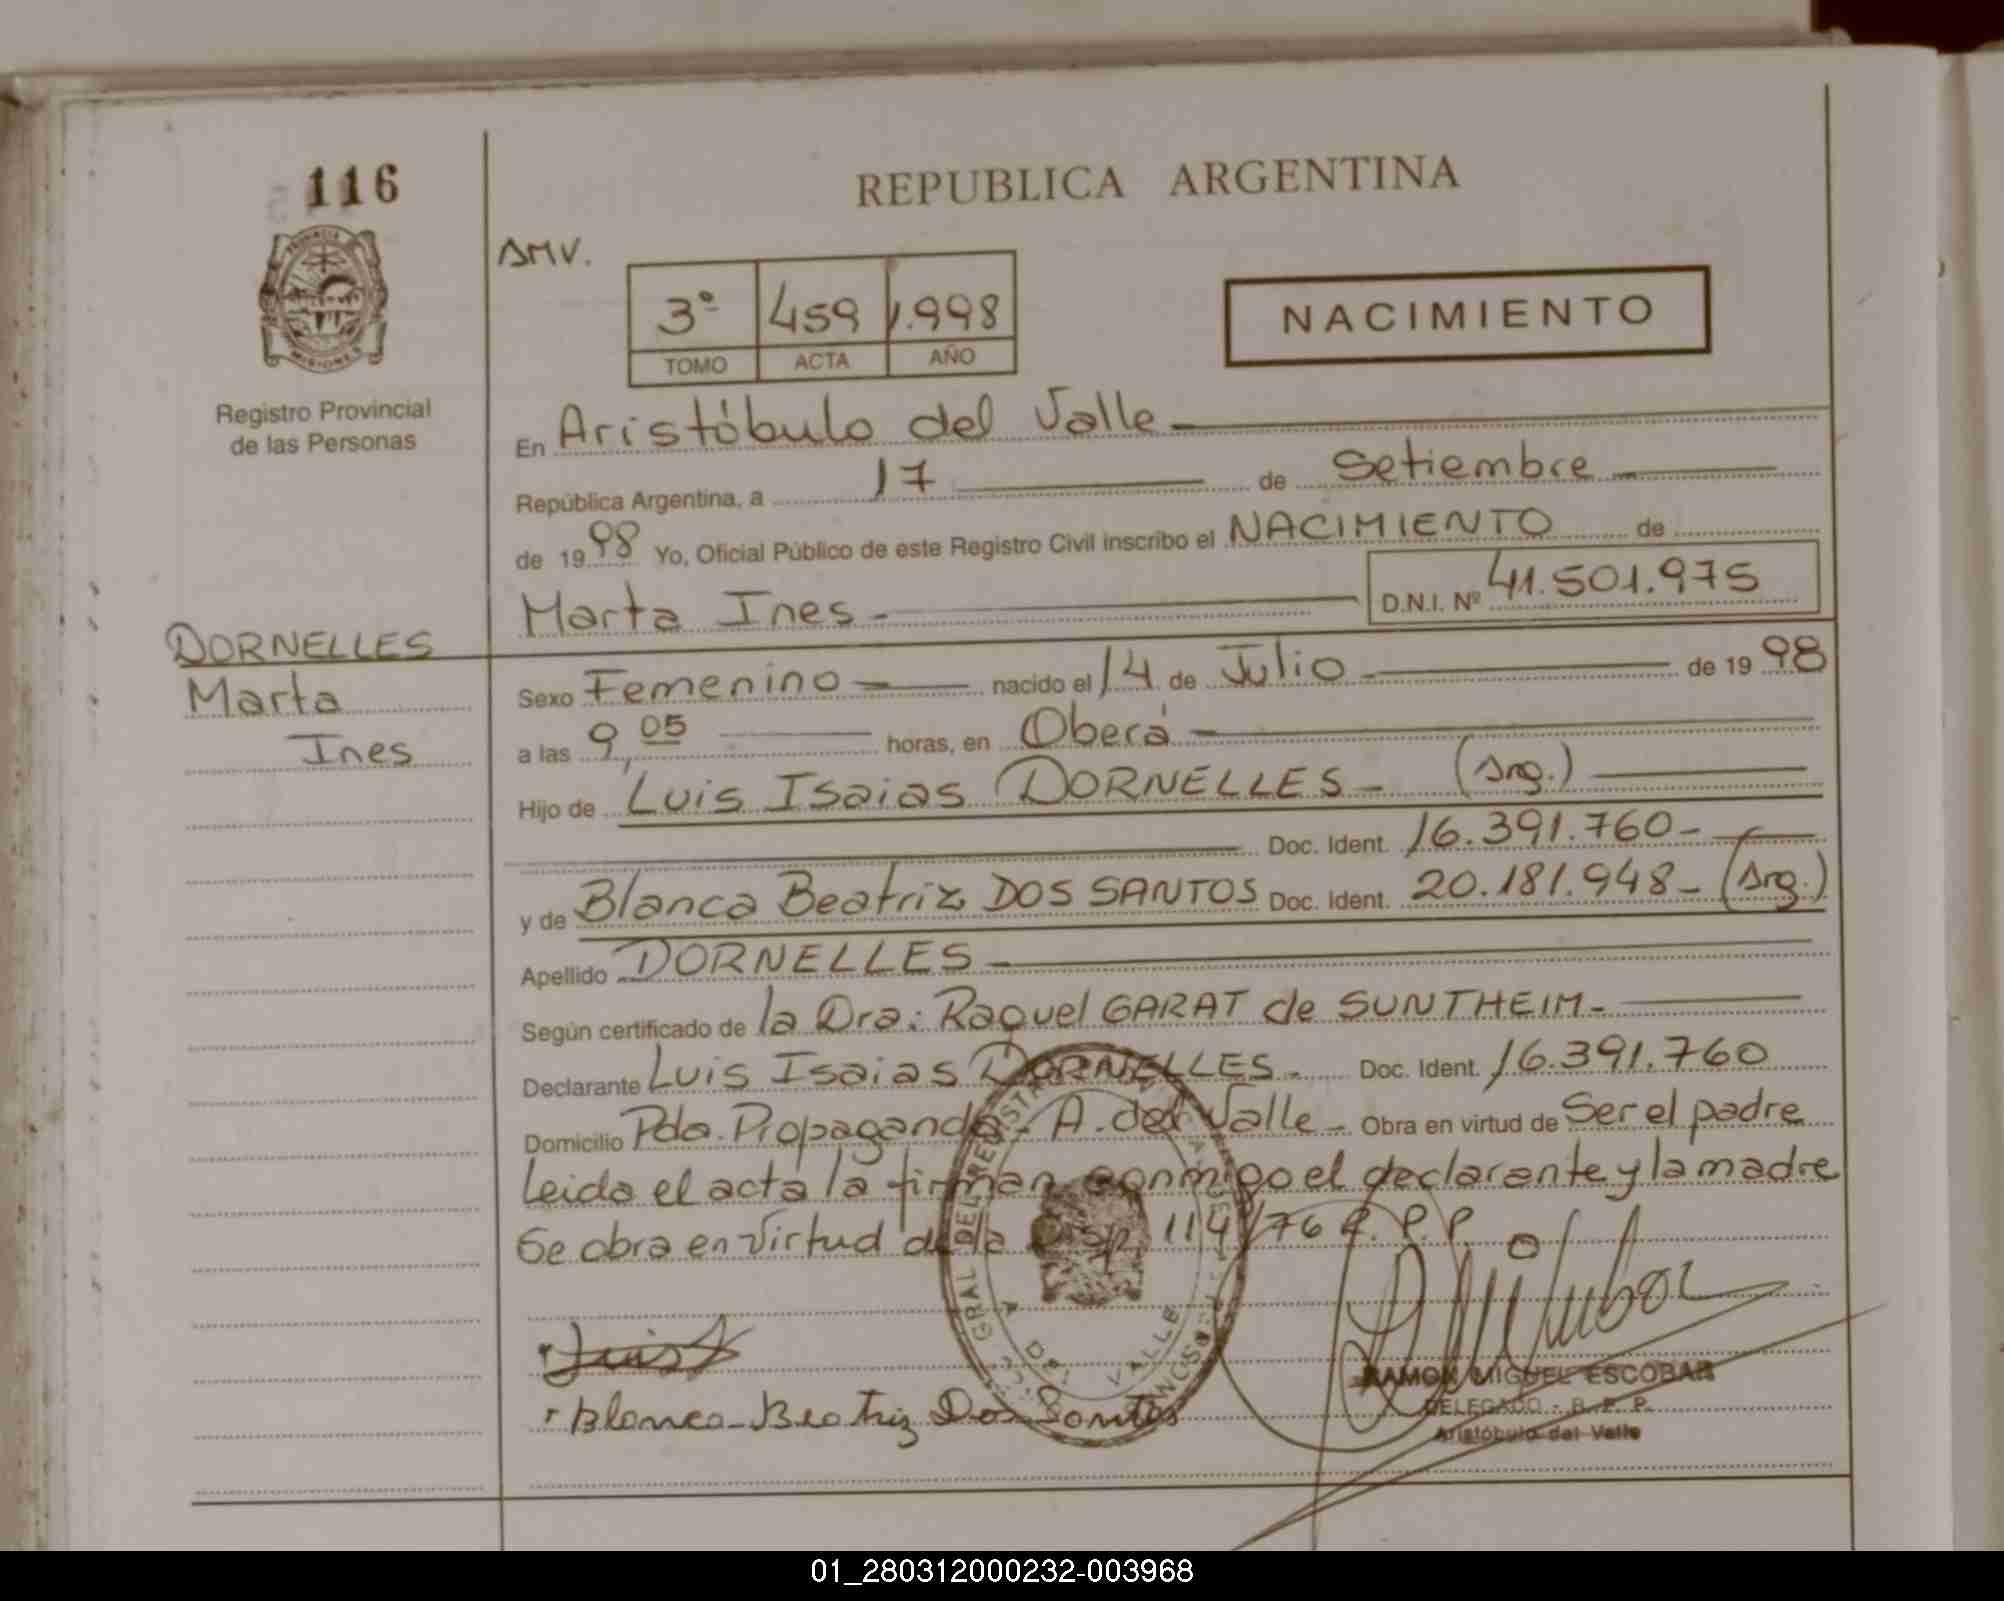 116
REPUBLICA ARGENTINA
AMV.
3° 459 1.998
TOMO ACTA AÑO
NACIMIENTO
PROVINCIA
MISIONES
Registro Provincial
de las Personas
En Aristóbulo del Valle
República Argentina, a 17 de Setiembre
de 1998 Yo, Oficial Público de este Registro Civil inscribo el NACIMIENTO de
Marta Ines - D.N.I. Nº 41.501.975
DORNELLES
Marta
Ines
Sexo Femenino nacido el 14 de Julio de 1998
a las 9,05 horas, en Oberá
Hijo de Luis Isaias DORNELLES - (Arg.)
Doc. Ident. 16.391.760 -
y de Blanca Beatriz DOS SANTOS Doc. Ident. 20.181.948 - (Arg.)
Apellido DORNELLES
Según certificado de la Dra: Raquel GARAT de SUNTHEIM -
Declarante Luis Isaias DORNELLES - Doc. Ident. 16.391.760
Domicilio Pdo. Propaganda - A. del Valle - Obra en virtud de Ser el padre
Leida el acta la firman conmigo el declarante y la madre
Se obra en virtud de la Disp. 114/76 R. P. P.
Luis
Blanca Beatriz Dos Santos
RAMON MIGUEL ESCOBAR
DELEGADO - R. P. P.
Aristóbulo del Valle
01_280312000232-003968